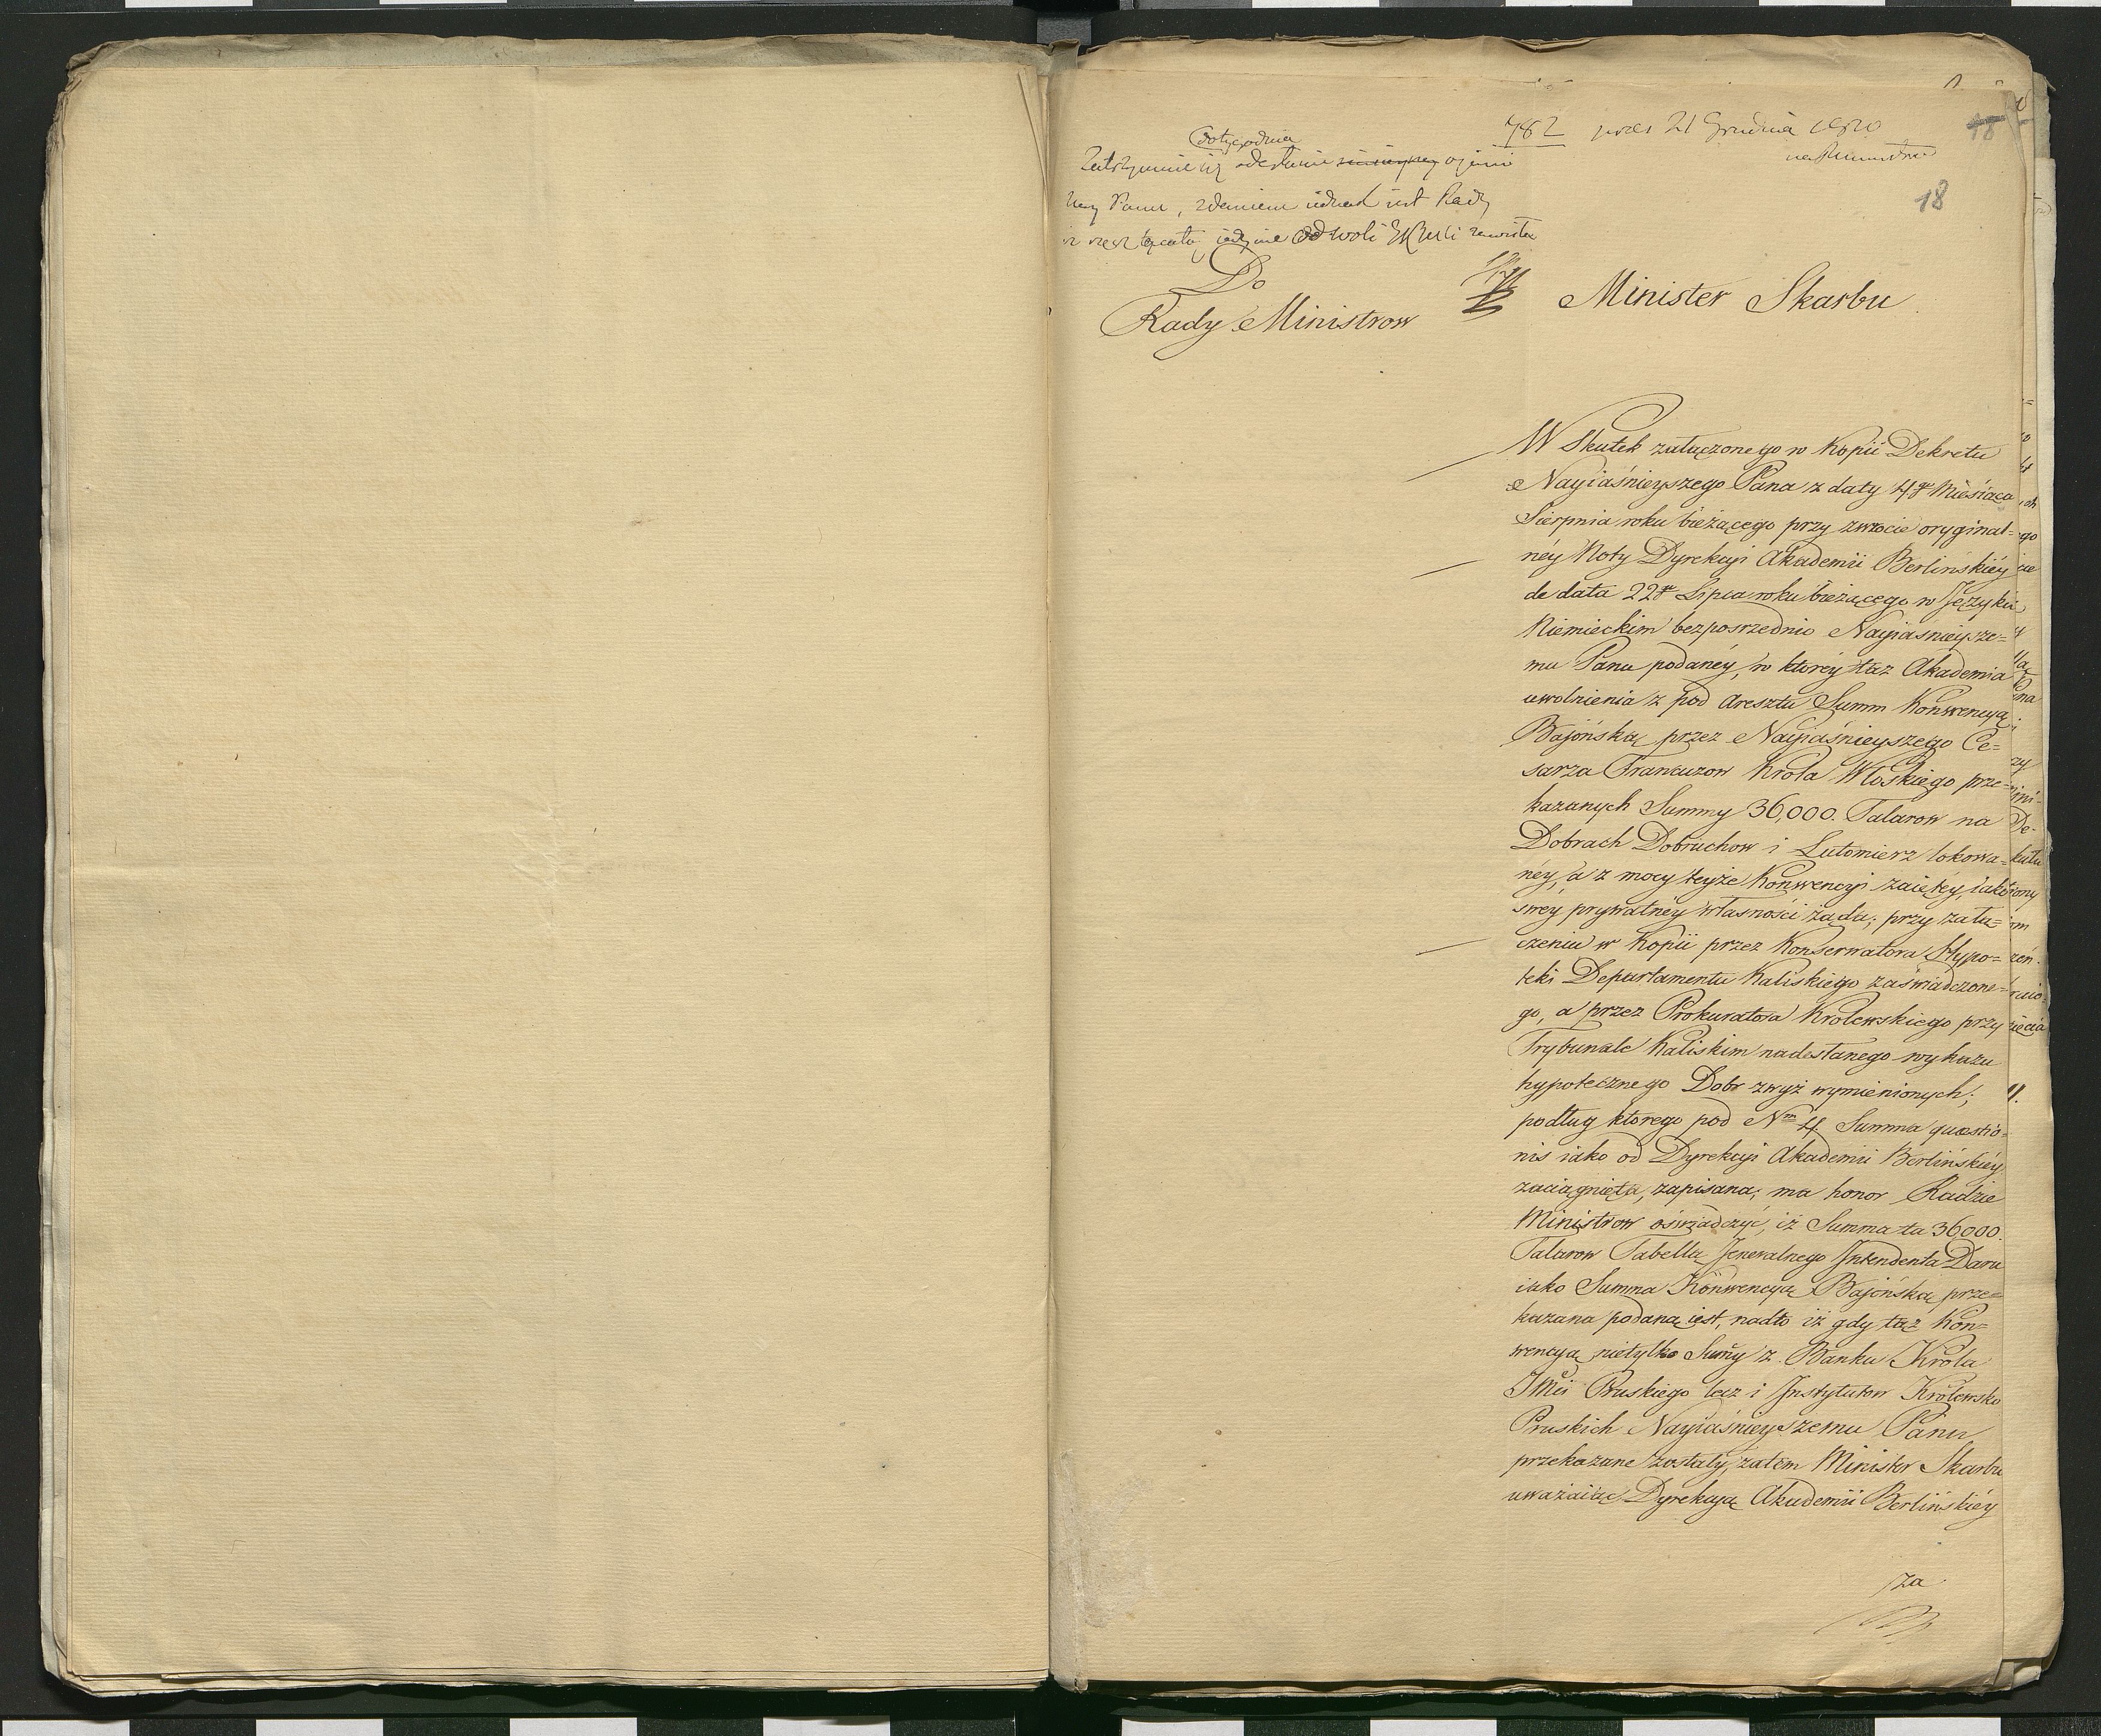 782 pres 21 Grudnia 1810
18
18
Zatrzymuie się odesłanie opinii
Pana, zdaniem iednak iest Rady
iedynie od woli zawisła
Do
Rady Ministrow
Minister Skarbu
W Skutek załączonego w Kopii Dekretu
Nayiaśnieyszego Pana z daty 4go Miesiąca
Sierpnia roku bieżącego przy zwrocie oryginal=
néy Noty Dyrekcyi Akademii Berlińskiéy
de data 22go Lipca roku bieżącego w Języku
Niemieckim bezposrzednio Nayiaśnieysze=
mu Panu podanéy, w któréy taż Akademia
uwolnienia z pod Aresztu Summ Konwencyą
Bajońską przez Nayiaśnieyszego Ce=
sarza Francuzow Krola Włoskiego prze=
kazanych Summy 36,000. Talarow na
Dobrach Dobruchow i Lutomierz lokowa=
néy, a z mocy teyże Konwencyi zaiętéy, iako
swéy prywatnéy własności żąda; przy załą=
czeniu w Kopii przez Konserwatora Hypo=
teki Departamentu Kaliskiego zaświadczone=
go, a przez Prokuratora Krolewskiego przy
Trybunale Kaliskim nadesłanego wykazu
hypotecznego Dobr zwyż wymienionych;
podług ktorego pod Nm 4 Summa quaestio=
nis iako od Dyrekcyi Akademii Berlińskiéy
zaciągnięta, zapisana; ma honor Radzie
Ministrow oświadczyć, iż Summa ta 36,000.
Talarow Tabellą Jeneralnego Intendenta Daru
iako Summa Konwencyą Bajońską prze=
kazana podaną iest, nadto iż gdy taż Kon=
wencyą nietylko Sumy z Banku Krola
JMci Pruskiego lecz i Instytutow Królewsko
Pruskich Nayiaśnieyszemu Panu
przekazane zostały, zatem Minister Skarbu
uważaiąc Dyrekcyą Akademii Berlińskiéy
za